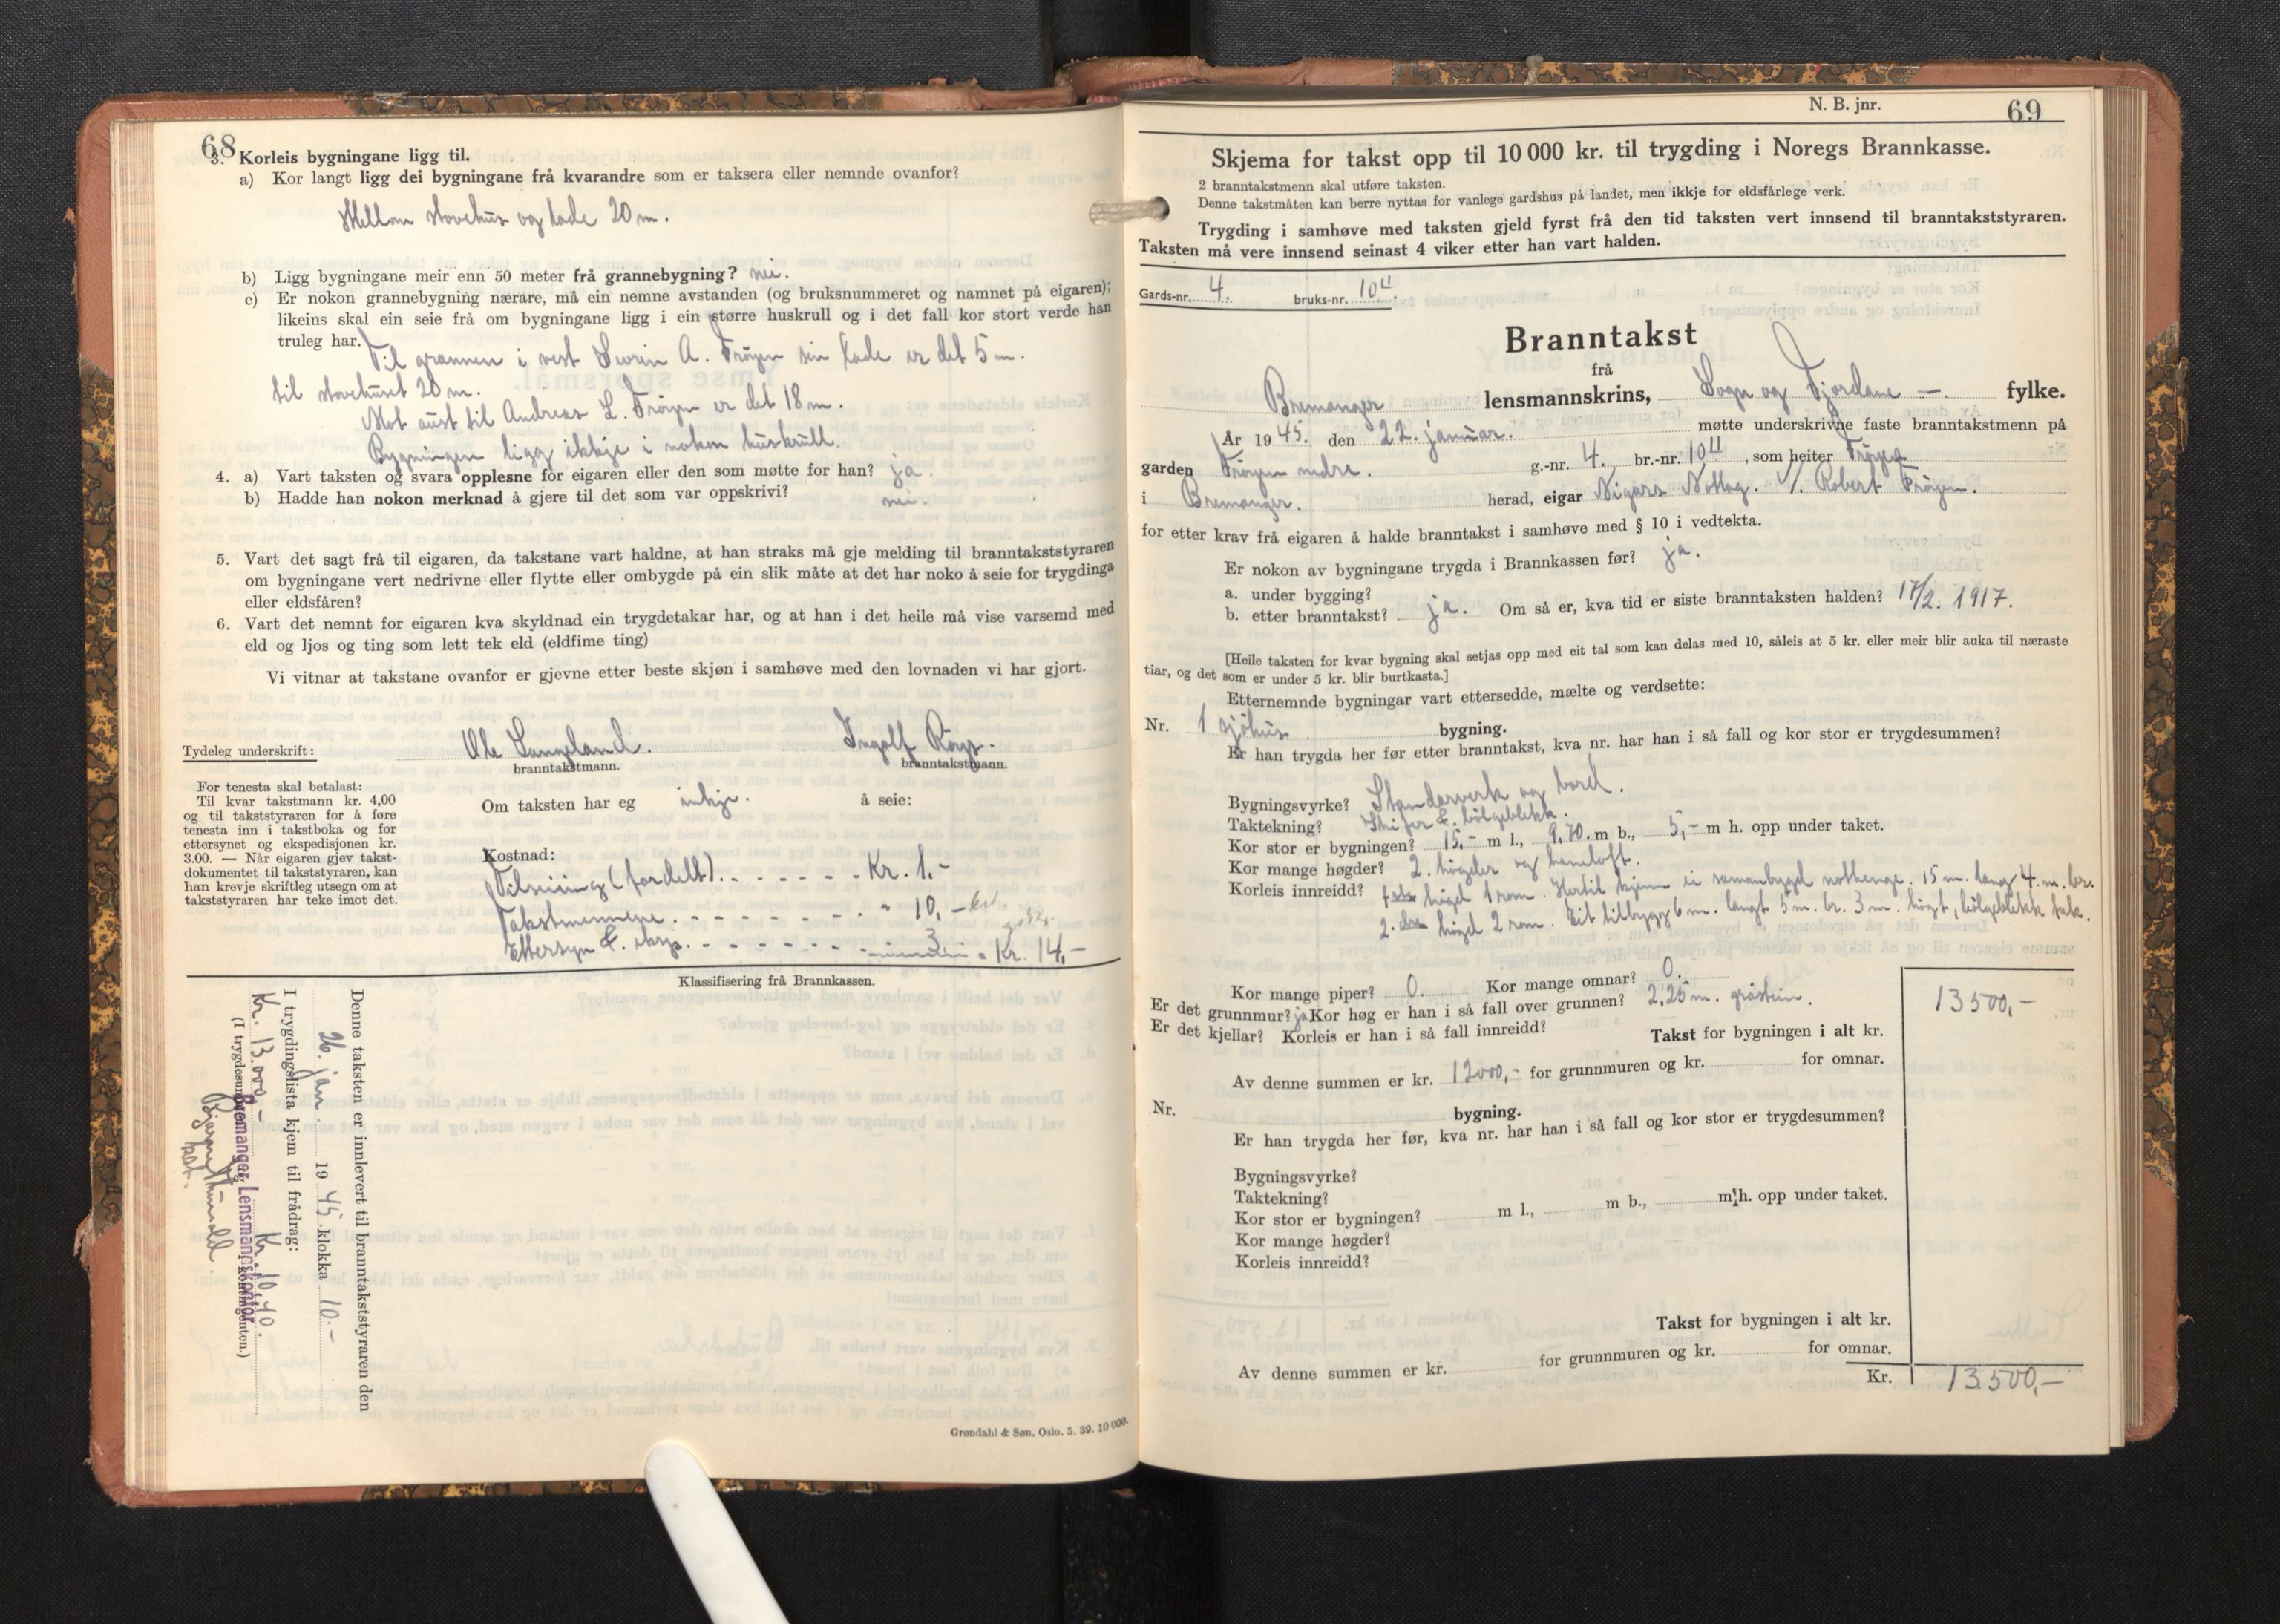 68
3. Korleis bygningane ligg til.
a) Kor langt ligg dei bygningane frå kvarandre som er taksera eller nemnde ovanfor?
Mellom stovehus og løde 20 m.
b) Ligg bygningane meir enn 50 meter frå grannebygning? nei.
c) Er nokon grannebygning nærare, må ein nemne avstanden (og bruksnummeret og namnet på eigaren);
likeins skal ein seie frå om bygningane ligg i ein større huskrull og i det fall kor stort verde han
truleg har.
Til grannen i vest A. Frøyen sin løde er det 5 m.
til stovehuset 20 m.
Mot aust til Andreas L. Frøyen er det 18 m.
Bygningen ligg ikkje i nokon huskrull.
4. a) Vart taksten og svara opplesne for eigaren eller den som møtte for han? ja.
b) Hadde han nokon merknad å gjere til det som var oppskrivi? nei.
5. Vart det sagt frå til eigaren, da takstane vart haldne, at han straks må gje melding til branntakststyraren
om bygningane vert nedrivne eller flytte eller ombygde på ein slik måte at det har noko å seie for trygdinga
eller eldsfåren?
6. Vart det nemnt for eigaren kva skyldnad ein trygdetakar har, og at han i det heile må vise varsemd med
eld og ljos og ting som lett tek eld (eldfime ting)
Vi vitnar at takstane ovanfor er gjevne etter beste skjøn i samhøve med den lovnaden vi har gjort.
Tydeleg underskrift: Ole Langeland. Ingolf Røys.
branntakstmann. branntakstmann.
For tenesta skal betalast:
Til kvar takstmann kr. 4,00
og til takststyraren for å føre
tenesta inn i takstboka og for
ettersynet og ekspedisjonen kr.
3.00. — Når eigaren gjev takst-
dokumentet til takststyraren, kan
han krevje skriftleg utsegn om at
takststyraren har teke imot det.
Om taksten har eg inkje. å seie:
Kostnad:
Tilseiing (fordelt) - - - - - - Kr. 1,-
Takstmennene - - - - - - - " 10,-
Ettersyn & eksp. - - - - - - - 3,- Kr. 14,-
Klassifisering frå Brannkassen.
Denne taksten er innlevert til branntakststyraren den
26. jan 1945 klokka 10.-
I trygdingslista kjem til frådrag:
Kr. 13.000,- Kr. 10,40.
(I trygdesum) kontingenten.)
Bremanger Lensmannskontor
Grøndahl & Søn. Oslo. 5. 39. 10 000.
N. B. jnr. 69
Skjema for takst opp til 10 000 kr. til trygding i Noregs Brannkasse.
2 branntakstmenn skal utføre taksten.
Denne takstmåten kan berre nyttas for vanlege gardshus på landet, men ikkje for eldsfårlege verk.
Trygding i samhøve med taksten gjeld fyrst frå den tid taksten vert innsend til branntakststyraren.
Taksten må vere innsend seinast 4 viker etter han vart halden.
Gards-nr. 4. bruks-nr. 10
Branntakst
frå
Bremanger lensmannskrins, Sogn og Fjordane — fylke.
År 1945. den 22. januar. møtte underskrivne faste branntakstmenn på
garden Frøyen nedre. g.-nr. 4., br.-nr. 10, som heiter Frøyen
i Bremanger. herad, eigar Nigars Notlag. v/. Robert Frøyen.
for etter krav frå eigaren å halde branntakst i samhøve med § 10 i vedtekta.
Er nokon av bygningane trygda i Brannkassen før? ja.
a. under bygging?
b. etter branntakst? ja. Om så er, kva tid er siste branntaksten halden? 17/2. 1917.
[Heile taksten for kvar bygning skal setjas opp med eit tal som kan delas med 10, såleis at 5 kr. eller meir blir auka til næraste
tiar, og det som er under 5 kr. blir burtkasta.]
Etternemnde bygningar vart ettersedde, mælte og verdsette:
Nr. 1 sjøhus bygning.
Er han trygda her før etter branntakst, kva nr. har han i så fall og kor stor er trygdesummen?
Bygningsvyrke? Standarverk og bord.
Taktekning? Skifer & bølgeblekk.
Kor stor er bygningen? 15,- m l., 9,70. m b., 5,- m h. opp under taket.
Kor mange høgder? 2. høgder og haneloft.
Korleis innreidd? høgd 1 rom. Hertil kjem ei samanbygd nothenge. 15 m. lang 4. m. br.
2. høgd 2 rom. Eit tilbygg 6 m. langt 5 m. br. 3 m. høgt, bølgeblekk tak.
Kor mange piper? 0. Kor mange omnar? 0.
Er det grunnmur? ja Kor høg er han i så fall over grunnen? 2,25 m. gråstein.
Er det kjellar? Korleis er han i så fall innreidd?
Takst for bygningen i alt kr. 13500,-
Av denne summen er kr. 12000,- for grunnmuren og kr. for omnar.
Nr. bygning.
Er han trygda her før, kva nr. har han i så fall og kor stor er trygdesummen?
Bygningsvyrke?
Taktekning?
Kor stor er bygningen? m l., m b., m h. opp under taket.
Kor mange høgder?
Korleis innreidd?
Takst for bygningen i alt kr.
Av denne summen er kr. for grunnmuren og kr. for omnar.
Kr. 13.500,-